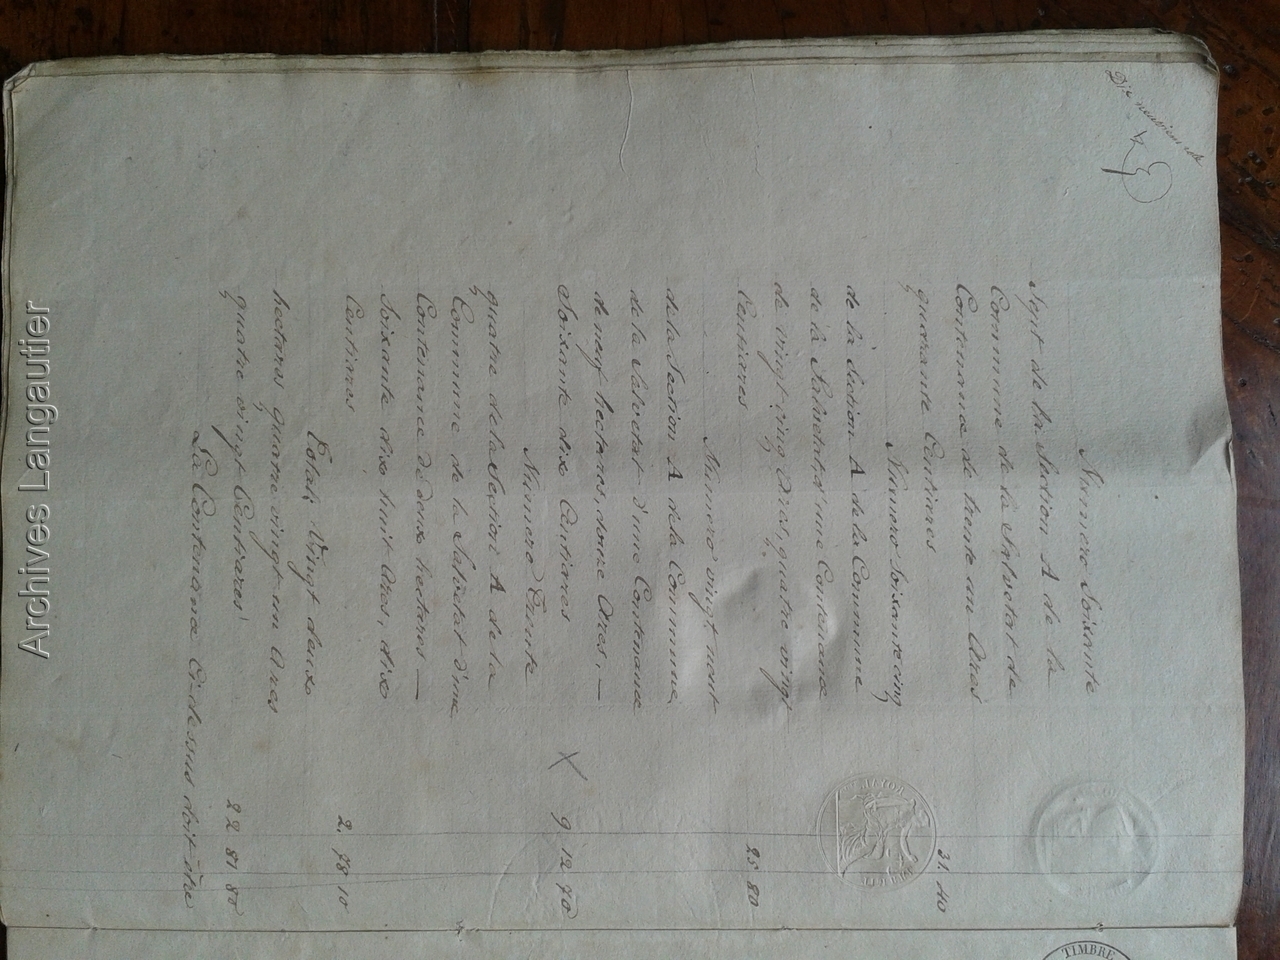 Dix neuvième rôle
Numero Soixante
Sept de la Section A de la
Commune de la Salvetat de
Contenance de trente un Ares
quarante Centiares 31 40
Numero Soixante cinq
de la Section A de la Commune
de la Salvetat d'une Contenance
de vingt cinq Ares, quatre vingt
Centiares 25 80
Numero vingt neuf
de la Section A de la Commune,
de la Salvetat d'une Contenance
de neuf hectares, douze Ares, —
Soixante dix Centiares X 9 12 70
Numero Trente
quatre de la Section A de la
Commune de la Salvetat d'une
Contenance de deux hectares —
Soixante dix huit Ares, dix
Centiares 2. 78 10
Total; Vingt deux
hectares quatre vingt un Ares
quatre vingt Centiares 22 81 80
La Contenance Ci-dessus doit être
TIMBRE
Archives Langautier